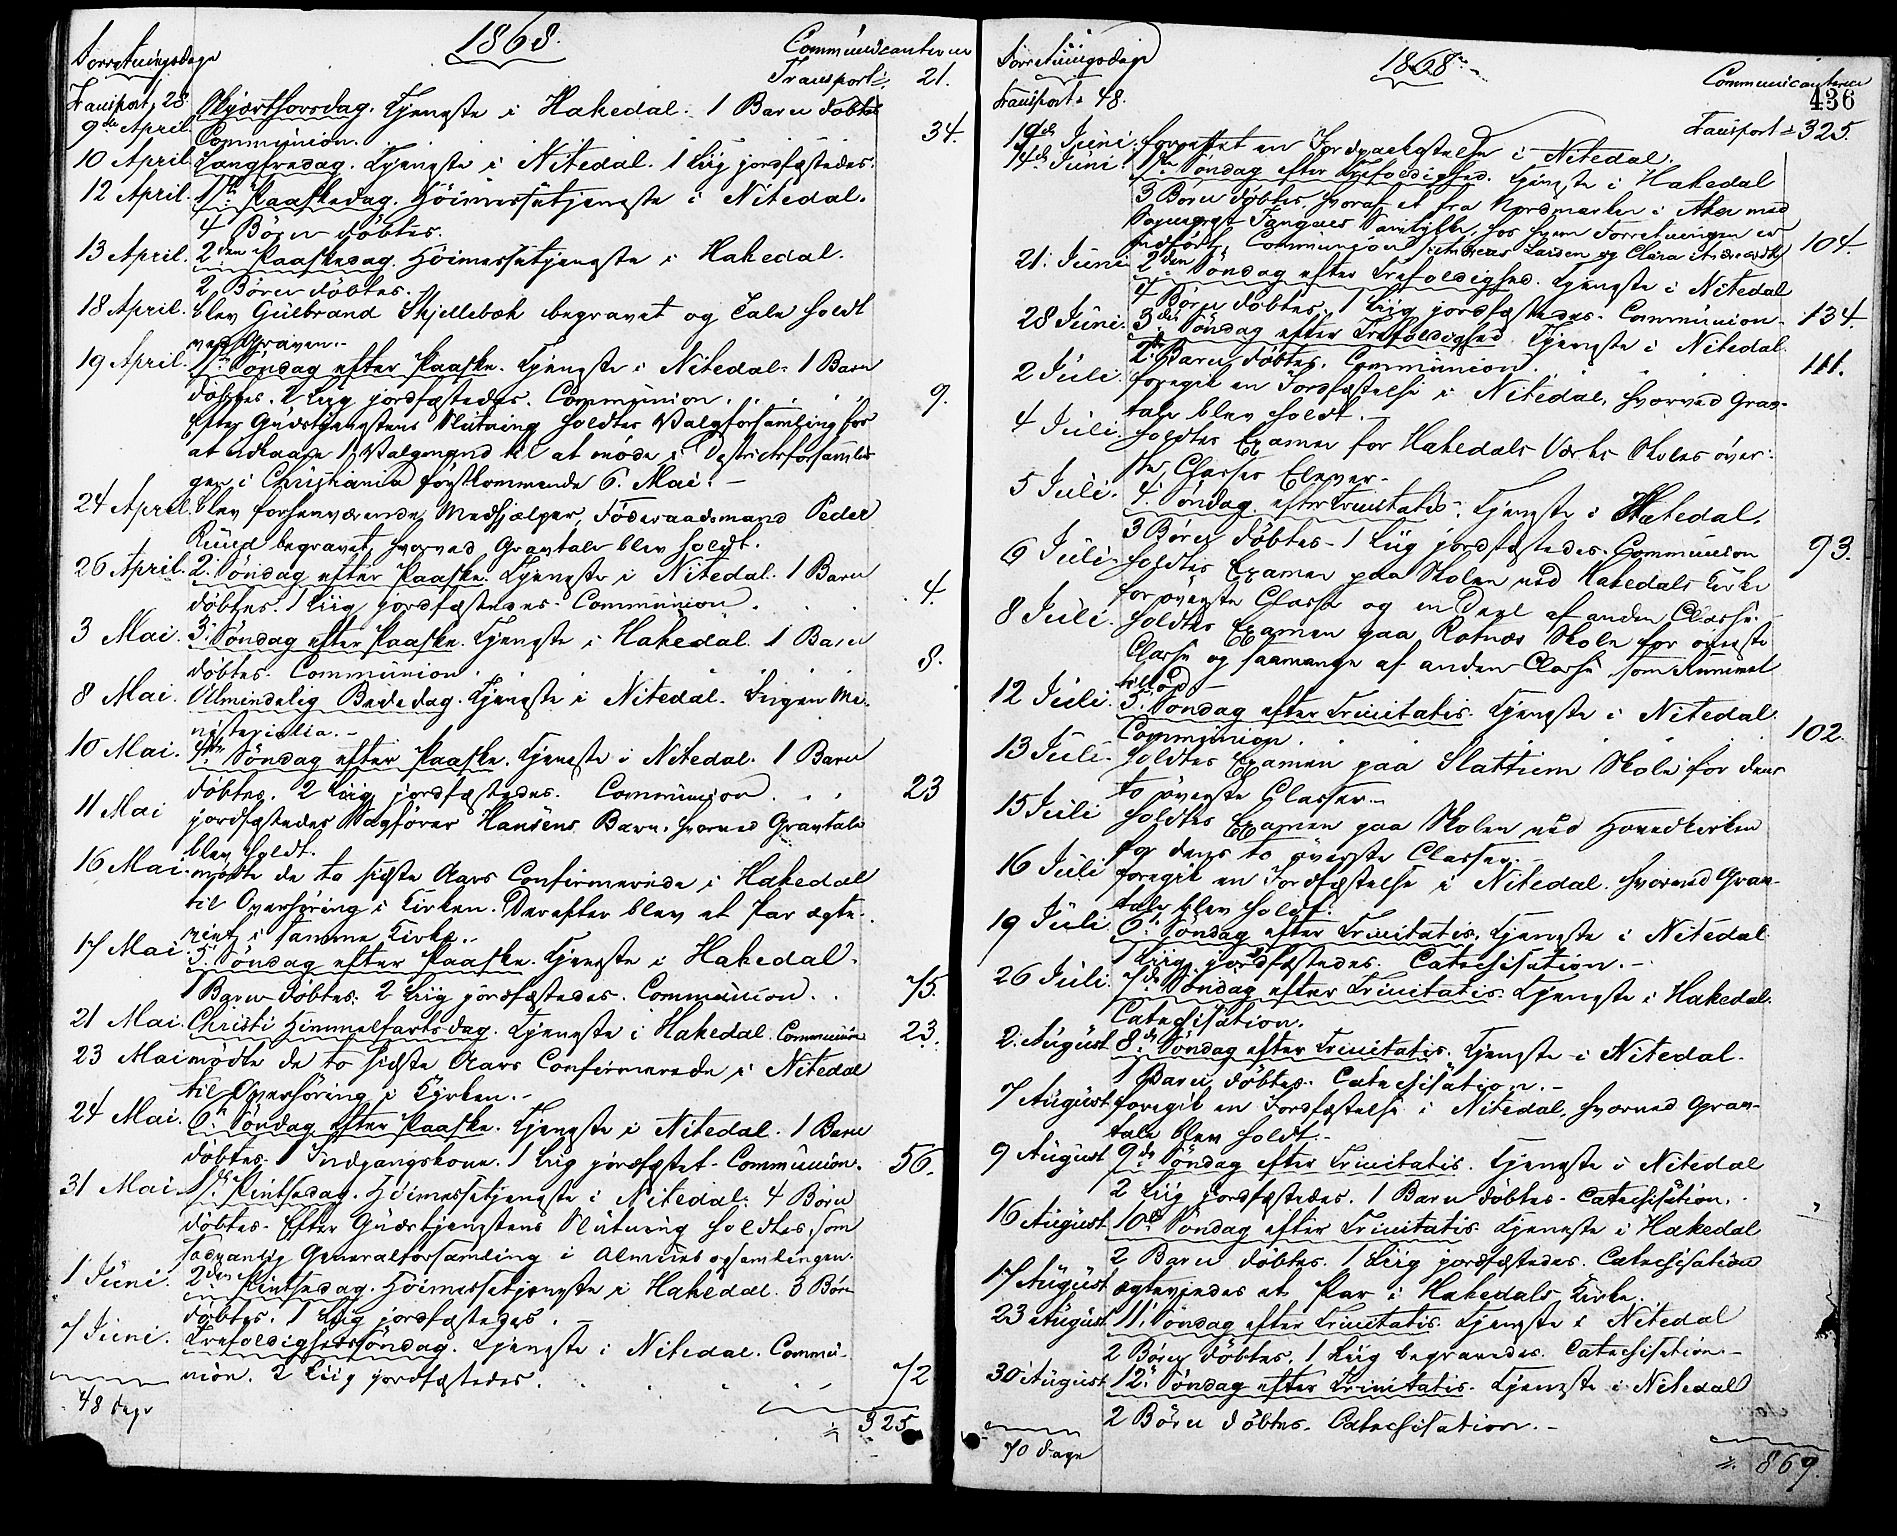 Forretningsdage
1868.
Communicanterne
Transport 28
Transport: 21.
9de April. Skjærthorsdag. Tjeneste i Hakedal. 1 Barn døbtes
Communion. 34.
10 April. Langfredag. Tjeneste i Nitedal. 1 Liig jordfæstedes.
12 April. 1ste Paaskedag. Höimessetjeneste i Nitedal.
4 Börn döbtes.
13 April. 2den Paaskedag. Höimessetjeneste i Hakedal.
2 Börn döbtes.
18 April. blev Gulbrand Skjellebæk begravet og Tale holdt
ved Graven.-
19 April. 1ste Söndag efter Paaske. Tjeneste i Nitedal. 1 Barn
döbtes. 2 Liig jordfæstedes. Communion. 9.
Efter Gudstjenestens Slutning holdtes Valgforsamling for
at udkaare 1 Valgmand til at møde i Distriktsforsamlin
gen i Christiania førstkommende 6. Mai.-
24 April. blev forhenværende Medhjælper, Föderaadsmand Peder
Ruud begravet, hvorved Gravtale blev holdt.
26 April. 2. Söndag efter Paaske. Tjeneste i Nitedal. 1 Barn
döbtes. 1 Liig jordfæstedes. Communion. 4.
3 Mai. 3. Söndag efter Paaske. Tjeneste i Hakedal. 1 Barn
döbtes. Communion. 8.
8 Mai. Almindelig Bededag. Tjeneste i Nitedal. Ingen Mi-
nisterialia.-
10 Mai. 4de Söndag efter Paaske. Tjeneste i Nitedal. 1 Barn
döbtes. 2 Liig jordfæstedes. Communion. 23
11 Mai jordfæstedes Sagfører Hansens Barn, hvorved Gravtale
blev holdt.
16 Mai. mødte de to sidste Aars Confirmerede i Hakedal
til Overhöring i Kirken. Derefter blev et Par ægte-
viet i samme Kirke.-
17 Mai. 5. Söndag efter Paaske. Tjeneste i Hakedal.
1 Barn döbtes. 2 Liig jordfæstedes. Communion. 75.
21 Mai. Christi Himmelfartsdag. Tjeneste i Hakedal. Communion 23.
23 Mai mödte de to sidste Aars Confirmerede i Nitedal
til Overhöring i Kirken.-
24 Mai. 6te Söndag efter Paaske. Tjeneste i Nitedal. 1 Barn
döbtes. 1 Indgangskone. 1 Liig jordfæstet. Communion. 56.
31 Mai. 1ste Pintsedag. Höimessetjeneste i Nitedal. 4 Börn
döbtes. Efter Gudstjenestens Slutning holdtes som
sædvanlig Generalforsamling i Almueb
1 Juni. 2den Pintsedag. Höimessetjeneste i Hakedal. 3 Börn
döbtes. 1 Liig jordfæstedes.
7 Juni. Trefoldighedssöndag. Tjeneste i Nitedal. Commu-
nion. 2 Liig jordfæstedes. 72
48 dage
325
Forretningsdage
1868.
Communicanterne
436
Transport 48.
Transport 325.
12de Juni. forrettet en Jordpaakastelse i Nitedal.
14de Juni. 1ste Söndag efter Trefoldighed. Tjeneste i Hakedal
3 Börn döbtes, hvoraf et fra Nordmarken i Aker med
Sognepræst Samtykke, hos hvem Forretningen er
indført. Communion. Andreas Larsen og Clara 104.
21. Juni 2den Söndag efter Trefoldighed. Tjeneste i Nitedal
4 Börn döbtes, 1 Liig jordfæstedes. Communion. 134.
28 Juni. 3die Söndag efter Trefoldighed. Tjeneste i Nitedal.
2 Barn döbtes. Communion. 111.
2 Juli. foregik en Jordfæstelse i Nitedal, hvorved Grav-
tale blev holdt.-
4 Juli. holdtes Examen for Hakedals Værks Skoles över-
ste Classes Elever.-
5 Juli. 4. Söndag efter Trinitatis. Tjeneste i Hakedal.
3 Börn döbtes. 1 Liig jordfæstedes. Communion 93.
6 Juli. holdtes Examen paa Skolen ved Hakedals Kirke
for øverste Classe og en Deel af anden Classe.
8 Juli. holdtes Examen paa Rotnæs Skole for øverste
Classe og saamange af anden Classe som Rummet
tillod
12 Juli. 5. Söndag efter Trinitatis. Tjeneste i Nitedal.
Communion. 102.
13 Juli. holdtes Examen paa Slattum Skole for dens
to øverste Classer.-
15 Juli holdtes Examen paa Skolen ved Hovedkirken
for dens to øverste Classer.-
16 Juli foregik en Jordfæstelse i Nitedal, hvorved Grav-
tale blev holdt.
19 Juli. 6. Söndag efter Trinitatis. Tjeneste i Nitedal
1 Liig jordfæstedes. Catechisation.-
26 Juli. 7de Söndag efter Trinitatis. Tjeneste i Hakedal.
Catechisation.
2. August 8de Söndag efter Trinitatis. Tjeneste i Nitedal.
1 Barn döbtes. Catechisation.-
7 August foregik en Jordfæstelse i Nitedal, hvorved Grav-
tale blev holdt.-
9 August 9de Söndag efter Trinitatis. Tjeneste i Nitedal
2 Liig jordfæstedes. 1 Barn döbtes. Catechisation.
16 August 10de Söndag efter Trinitatis Tjeneste i Hakedal
2 Barn döbtes. 1 Liig jordfæstedes. Catechisation
17 August ægteviedes et Par i Hakedals Kirke.
23 August 11. Söndag efter Trinitatis. Tjeneste i Nitedal
2 Börn döbtes. 1 Liig begravedes. Catechisation.-
30 August 12. Söndag efter Trinitatis. Tjeneste i Nitedal
2 Börn döbtes. Catechisation.-
70 dage
869.